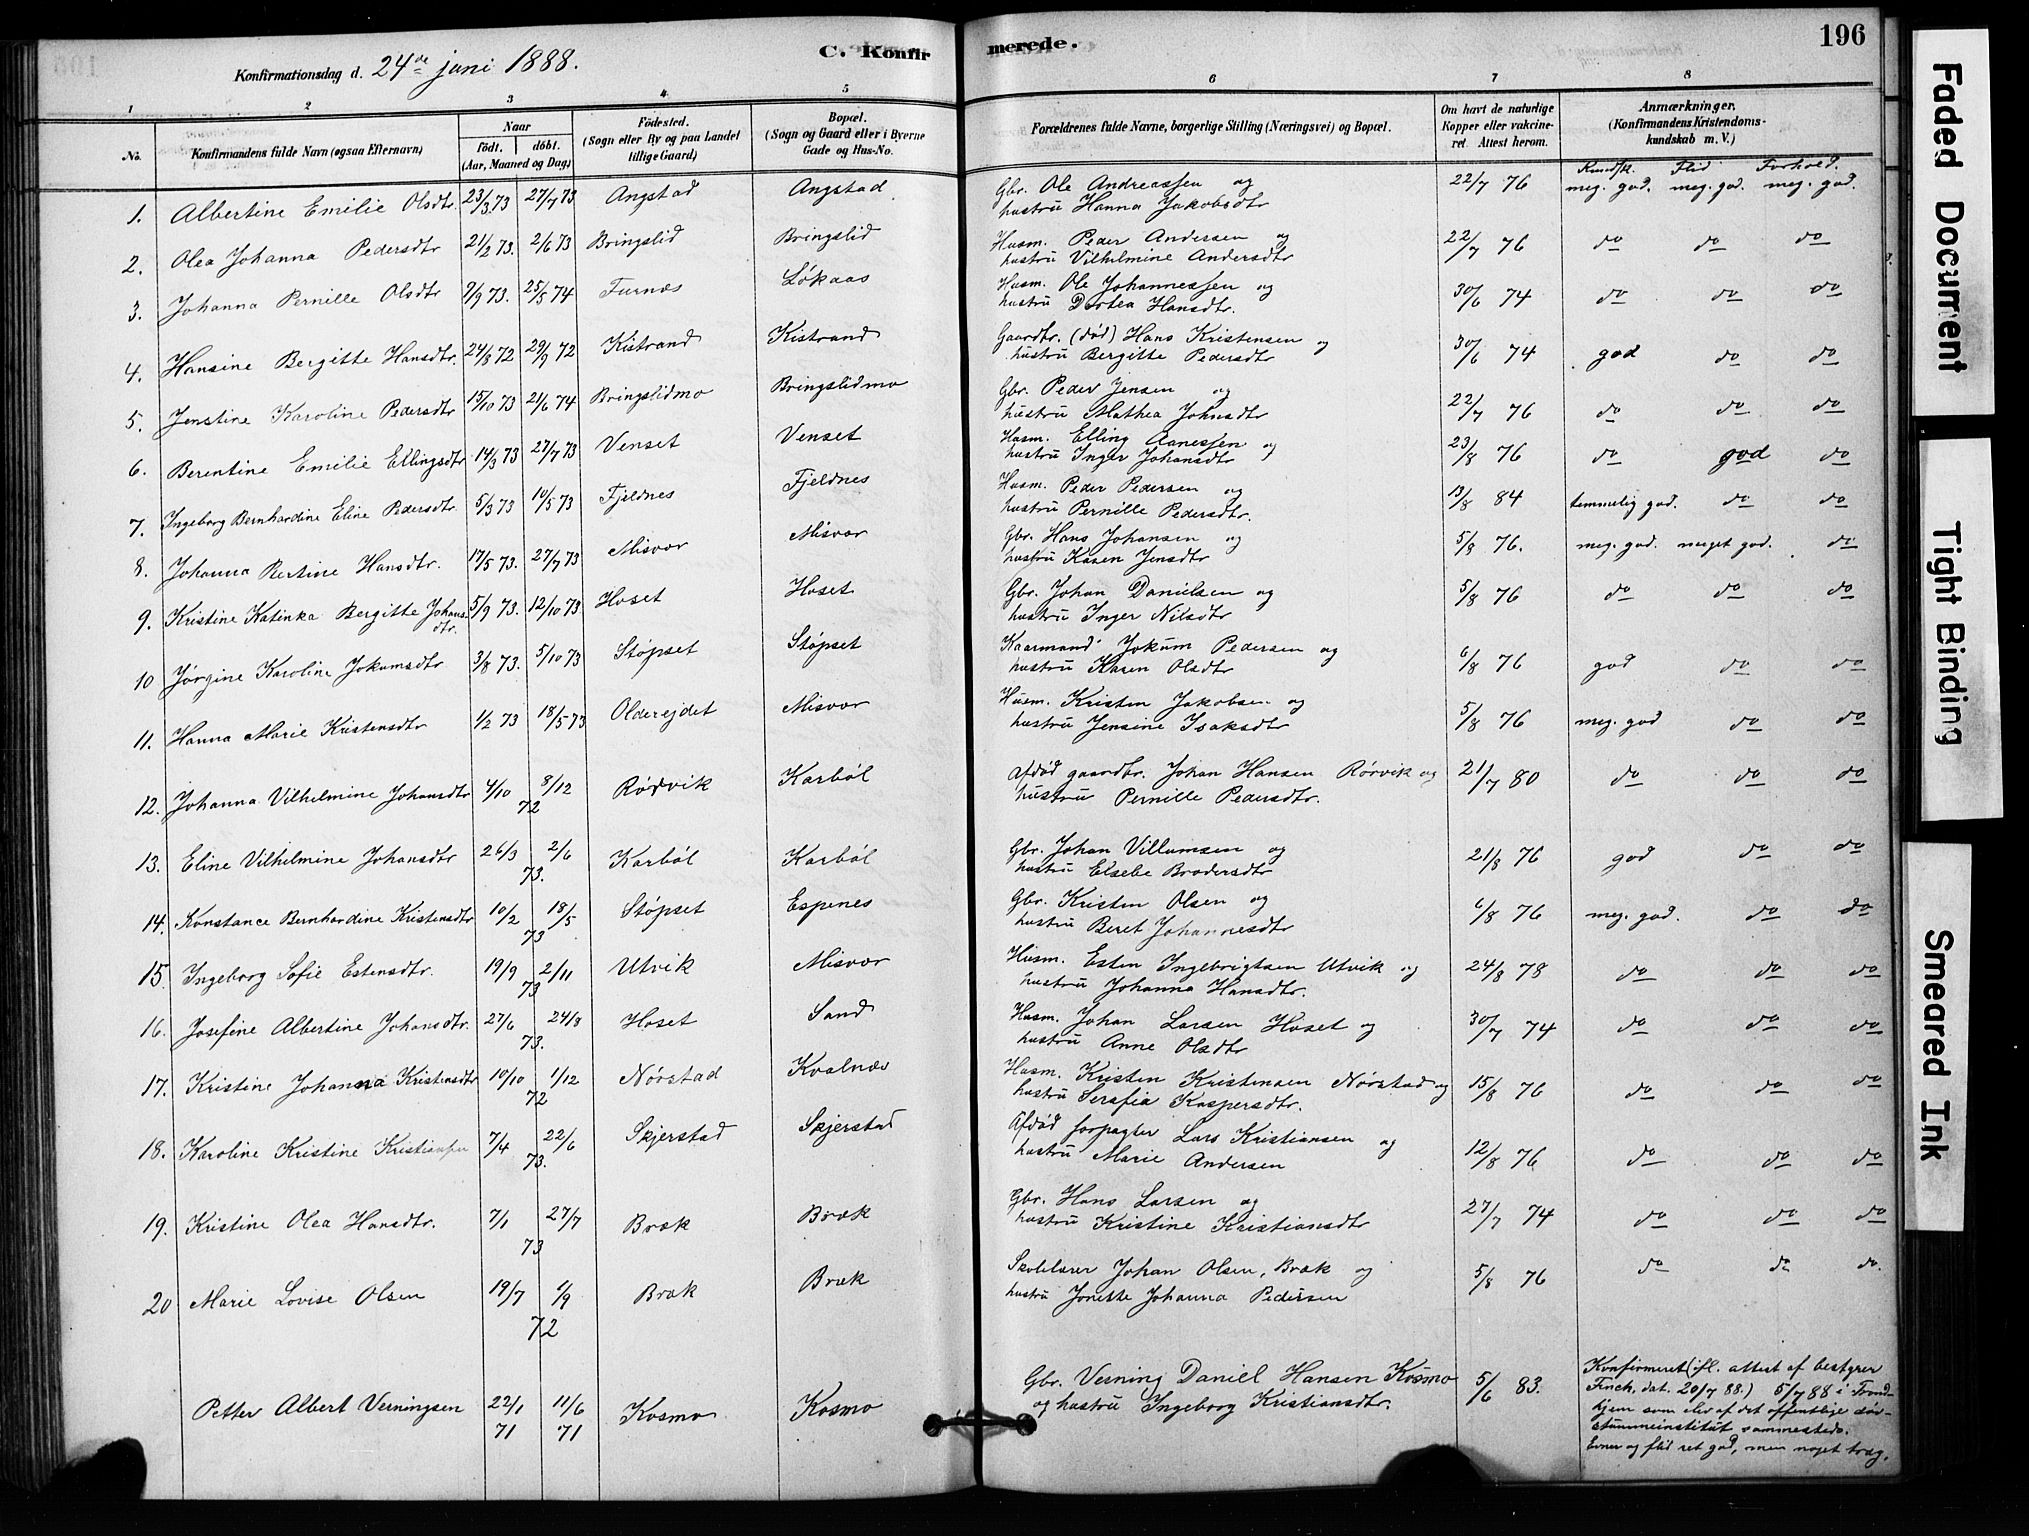 196
C. Konfirmerede.
Konfirmationsdag d. 24de juni 1888.
1 2 3 4 5 6 7 8
No. Konfirmandens fulde Navn (ogsaa Efternavn) Naar født. døbt. (Aar, Maaned og Dag) Fødested. (Sogn eller By og paa Landet tillige Gaard) Bopæl. (Sogn og Gaard eller i Byerne Gade og Hus-No. Forældrenes fulde Navne, borgerlige Stilling (Næringsvei) og Bopæl. Om havt de naturlige Kopper eller vakcineret. Attest herom. Anmærkninger. (Konfirmandens Kristendomskundskab m. V.)
Kundsk. Flid Forhold.
1. Albertine Emilie Olsdtr. 23/3 73 27/7 73 Angstad Angstad Gbr. Ole Andreassen og 22/7 76 meg. god. meg. god. meg. god.
hustru Hanna Jakobsdtr
2. Olea Johanna Pedersdtr 21/2 73. 2/6 73 Bringslid Bringslid Husm. Peder Andersen og 22/7 76 do do do
hustru Vilhelmine Andersdtr
3. Johanna Pernille Olsdtr 9/9 73. 25/5 74 Furnes Løkaas Husm. Ole Johannessen og 30/6 74 do do do
hustru Dortea Hansdtr.
4. Hansine Bergitte Hansdtr. 24/8 72 29/9 72 Kistrand Kistrand Gaardbr. (død) Hans Kristensen og 30/6 74 god do do
hustru Bergitte Pedersdtr
5. Jenstine Karoline Pedersdtr 15/10 73 21/6 74 Bringslidmo Bringslidmo Gbr. Peder Jensen og 22/7 76 do do do
hustru Mathea Johnsdtr
6. Berentine Emilie Ellingsdtr 14/3 73 27/7 73 Venset Venset Husm. Elling Aanessen og 23/8 76 do god do
hustru Inger Johansdtr
7. Ingeborg Bernhardine Eline Pedersdtr. 5/3 73 10/5 73 Fjeldnes Fjeldnes Husm. Peder Pedersen og 13/8 84 temmelig god. do do
hustru Pernille Pedersdtr.
8. Johanna Bertine Hansdtr. 17/5 73. 27/7 73 Misvær Misvær Gbr. Hans Johansen og 5/8 76. meg. god. meget god. do
hustru Karen Jensdtr
9. Kristine Katinka Bergitte Johansdtr. 5/9 73. 12/10 73 Hoset Hoset Gbr. Johan Danielsen og 5/8 76 do do do
hustru Inger Nilsdtr
10 Jørgine Karoline Jokumsdtr 3/8 73. 5/10 73 Støpset Støpset Kaarmand Jokum Pedersen og 6/8 76 god do do
hustru Karen Olsdtr
11. Hanna Marie Kristensdtr 1/2 73 18/5 73 Olderejdet Misvær Husm. Kristen Jakobsen og 5/8 76 meg. god do do
hustru Jensine Isaksdtr
12. Johanna Vilhelmine Johansdtr 4/10 8/12 72 Rødvik Karbøl Afdød gaardbr. Johan Hansen Rørvik og 21/7 80 do do do
hustru Pernille Pedersdtr.
13. Eline Vilhelmine Johansdtr 26/3 2/6 73. Karbøl Karbøl Gbr. Johan Villumsen og 21/8 76 god do do
hustru Elsebe Brodersdtr
14. Konstance Bernhardine Kristensdtr 10/2 18/5 73 Støpset Espenes Gbr. Kristen Olsen og 6/8 76 meg. god. do do
hustru Beret Johannesdtr
15 Ingeborg Sofie Estensdtr. 19/9 2/11 73 Utvik Misvær Husm. Esten Ingebrigtsen Utvik og 24/8 78 do do do
hustru Johanna Hansdtr.
16. Josefine Albertine Johansdtr. 27/6 24/8 73. Hoset Sand Husm. Johan Larsen Hoset og 30/7 74 do do do
hustru Anne Olsdtr
17. Kristine Johanna Kristensdtr 10/10 1/12 72 Nørstad Kvalnes Husm. Kristen Kristensen Nørstad og 15/8 76 do do do
hustru Serafia Kaspersdtr.
18. Karoline Kristine Kristiansen 7/4 22/6 73. Skjerstad Skjerstad Afdød forpagter Lars Kristiansen og 12/8 76 do do do
hustru Marie Andersen
19. Kristine Olea Hansdtr. 7/1 27/7 73 Bræk Bræk Gbr. Hans Larsen og 27/7 74 do do do
hustru Kristine Kristiansdtr
20 Marie Lovise Olsen 19/7 1/9 72 Bræk Bræk Skolelærer Johan Olsen, Bræk og 5/8 76 do do do.
hustru Jonette Johanna Pedersen
Petter Albert Verningsen 22/1 71 11/6 71 Kosmo Kosmo Gbr. Verning Daniel Hansen Kosmo 5/6 83.
og hustru Ingeborg Kristiansdtr.
Konfirmeret (ifl. attest af bestyrer
Finch, dat. 20/7 88.) 5/7 88 i Trond-
hjem som elev af det offentlige døv-
stummeinstitut sammesteds.
Evner og flid ret god, men noget træg.
Faded Document
Tight Binding
Smeared Ink